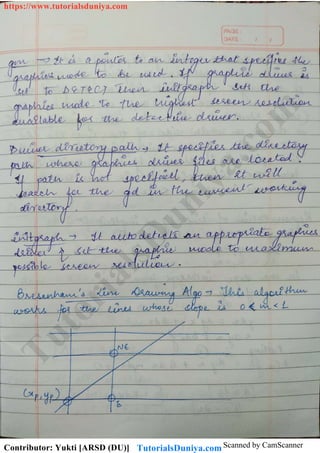 https://www.tutorialsduniya.com
PAGE:
DATE: / /
gm → It is a pointer to an integer that specifies the
graphics mode to be used. If graphic driver is
set to DETECT then initgraph sets the
graphics mode to the highest screen resolution
available for the detective driver.
Driver directory path → It specifies the directory
path where graphics driver files are located.
If path is not specified then it will
search for the gd in the current working
directory.
initgraph → It autodetects an appropriate graphics
driver & set the graphic mode to maximum
possible screen resolution.
Bresenham's Line Drawing Algo → This algorithm
works for the lines whose slope is 0 ≤ m < 1
NE
(xp, yp)
E
Contributor: Yukti [ARSD (DU)] TutorialsDuniya.com Scanned by CamScanner